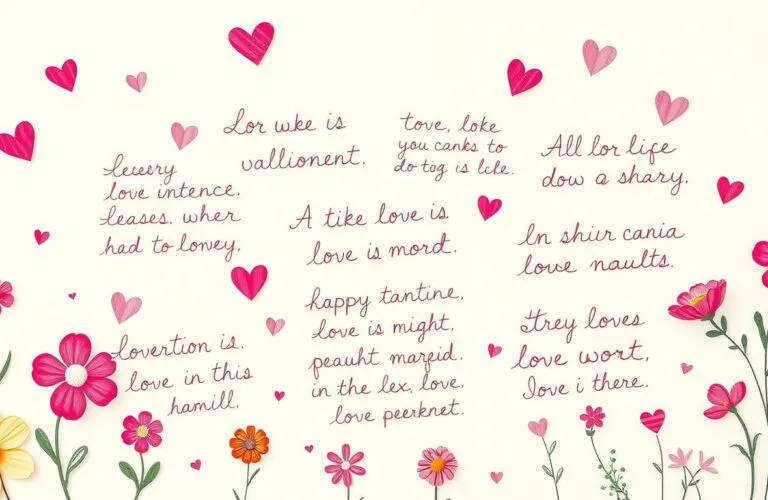 Lor wke is
vallionent.
tove, loke
you canks to
do tog is lcle.
All lor life
dow a shary.
lecery
love intence.
leases. wher
had to loney,
A tike love is
love is mord.
In shiur cania
love naults.
happy tantine,
love is might,
peauht marfeid.
in the lex, love.
love peerknet.
lovertion is.
love in this
hamill.
Strey loves
love wort,
love i there.